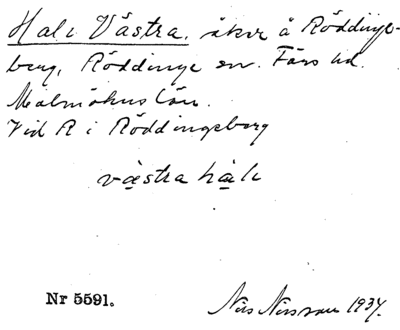 Hak Västra, åker å Röddinge-
berg, Röddinge sn. Färs hd.
Malmöhus län.
Vid R i Röddingeberg
västra hak
Nr 5591.
Nils Nilsson 1934.